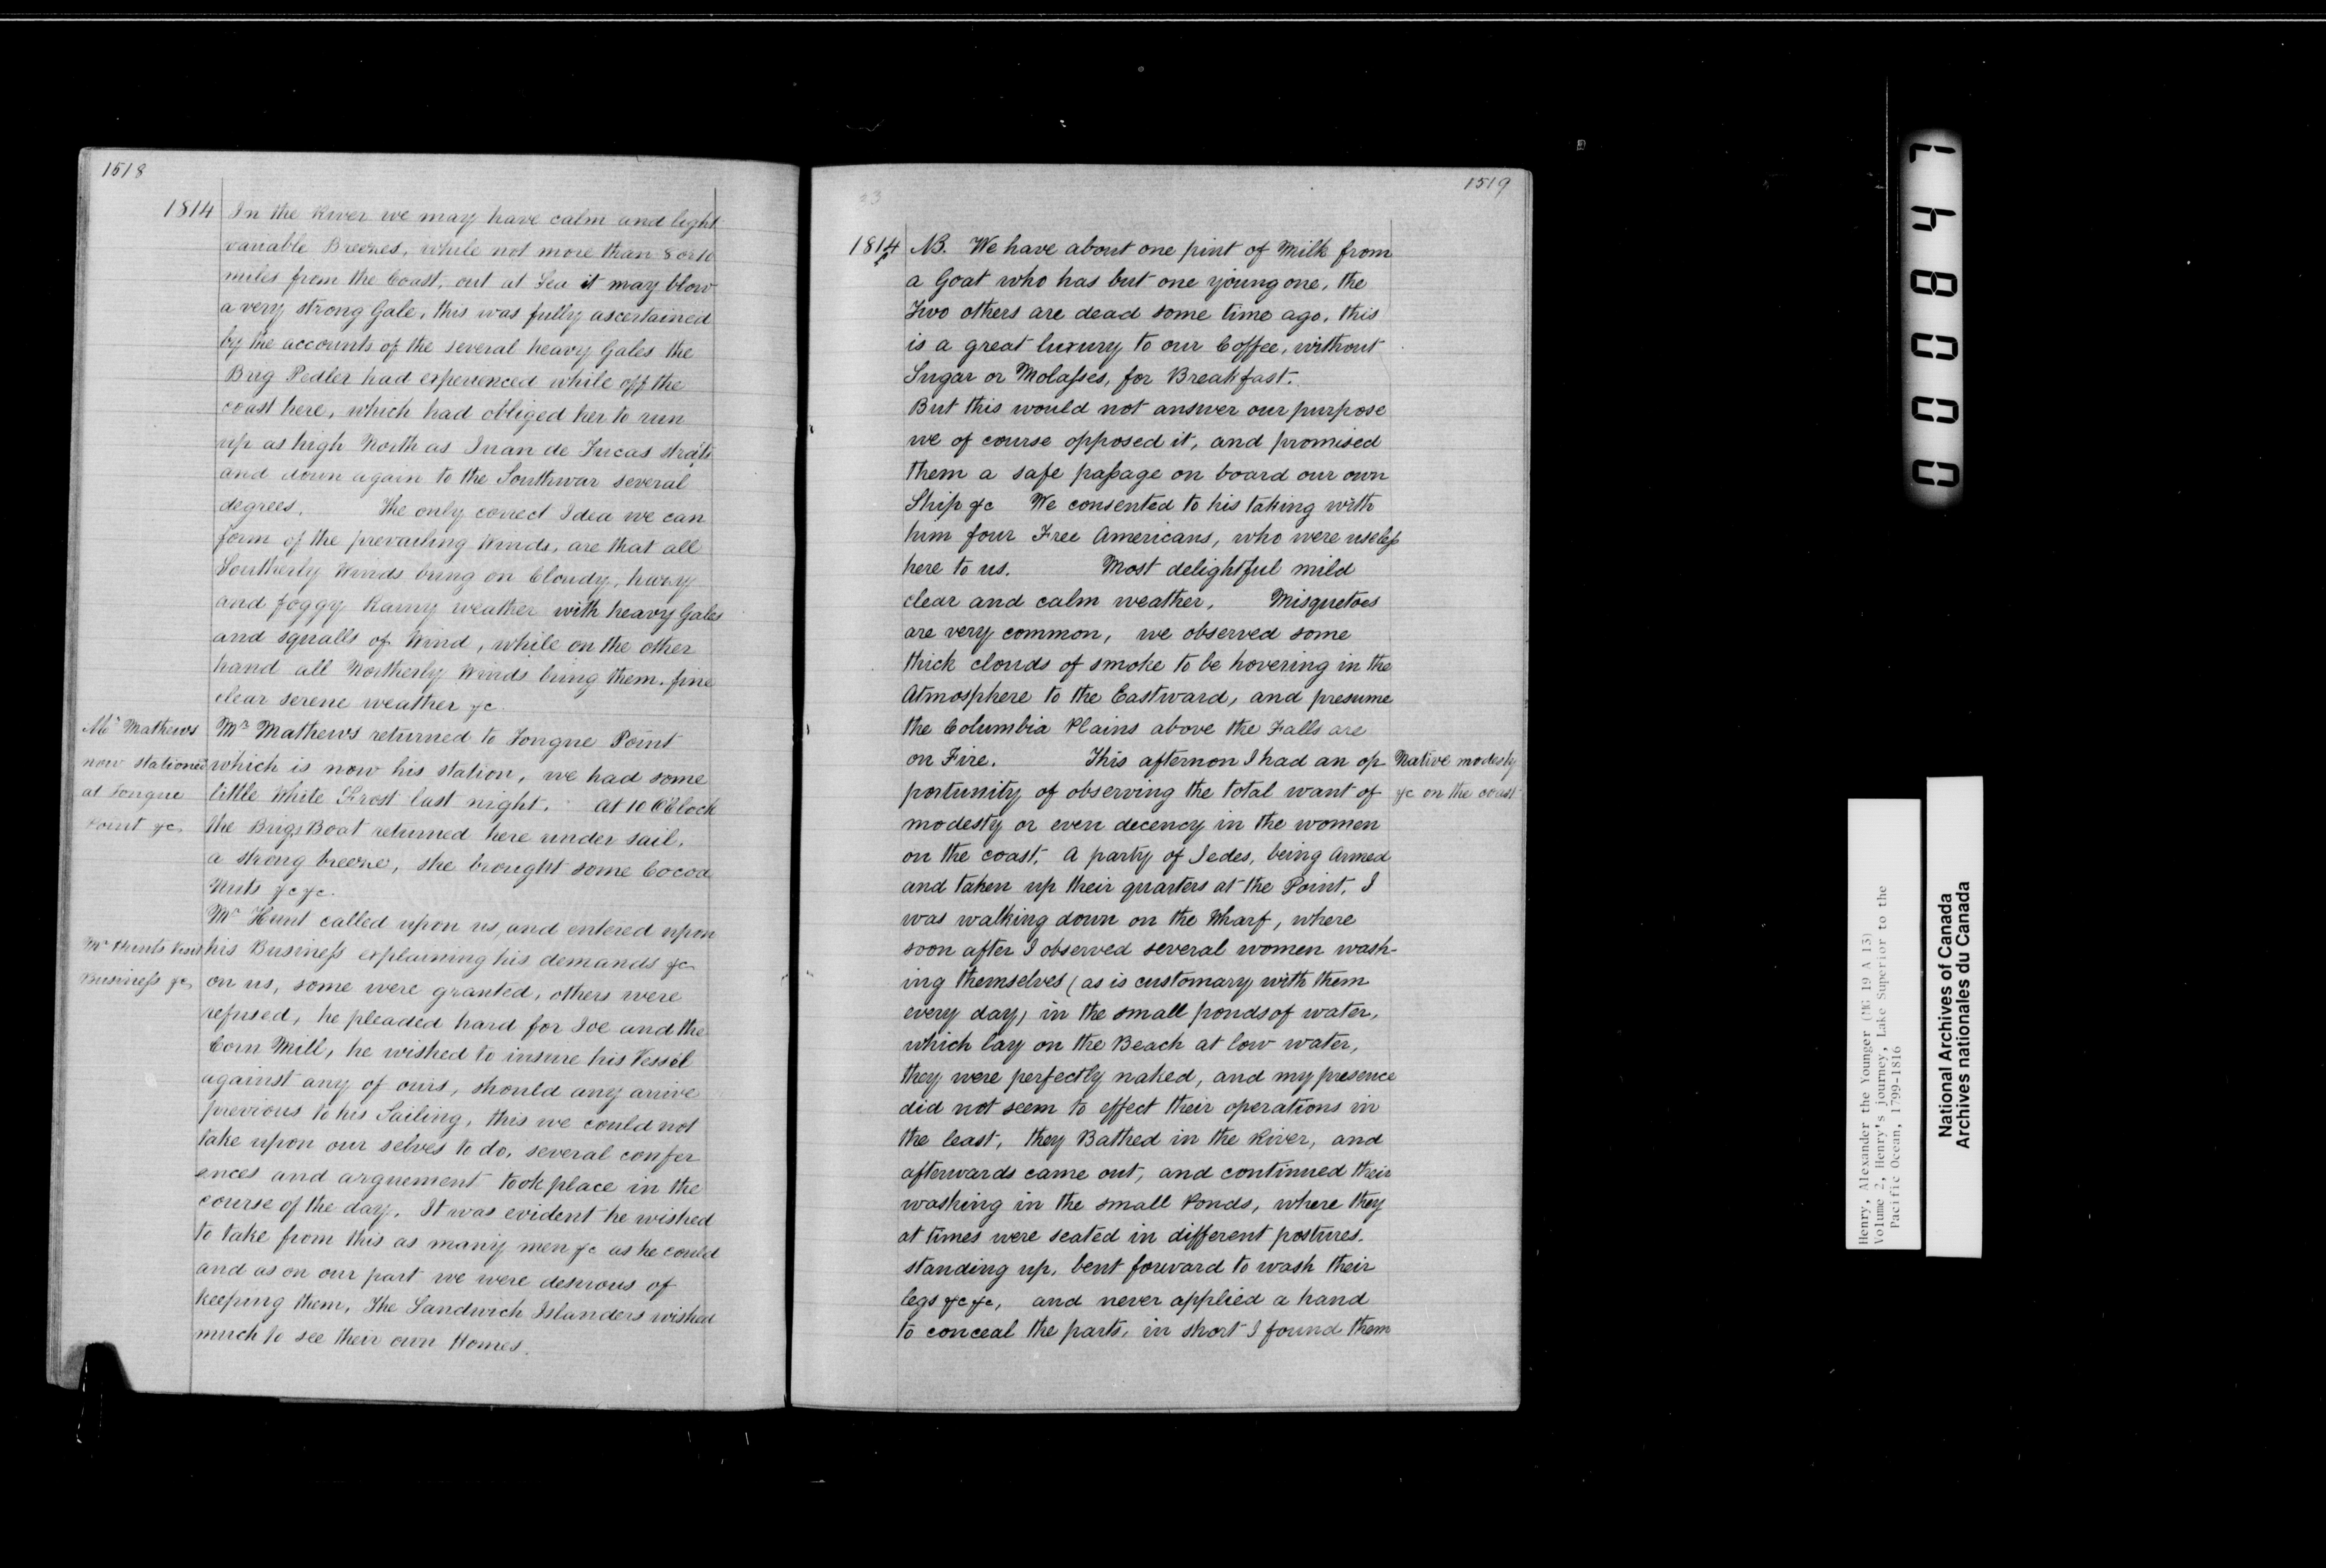 1518
1814 In the River we may have calm and light
variable Breezes, while not more than 8 or 10
miles from the Coast, out at Sea it may blow
a very strong Gale, this was fully ascertained
by the accounts of the several heavy Gales the
Brig Pedler had experienced while off the
coast here, which had obliged her to run
up as high North as Juan de Fucas straits
and down again to the Southwar several
degrees. The only correct Idea we can
form of the prevailing Winds, are that all
Southerly Winds bring on Cloudy, hazy
and foggy Rainy weather with heavy Gales
and squalls of Wind, while on the other
hand all Northerly Winds bring them. fine
clear serene weather &c.
Mr Mathews
now stationed
at Tongue
Point &c
Mr Mathews returned to Tongue Point
which is now his station, we had some
little White Frost last night. At 10 OClock
the Brigs Boat returned here under sail.
a strong breeze, she brought some Cocoa
Nuts &c &c.
Mr Hunts Visit
Business &c
Mr Hunt called upon us, and entered upon
his Business explaining his demands &c
on us, some were granted, others were
refused, he pleaded hard for Joe and the
Corn Mill, he wished to insure his Vessel
against any of ours, should any arrive
previous to his Sailing, this we could not
take upon our selves to do. several confer
ences and arguement took place in the
course of the day. It was evident he wished
to take from this as many men &c as he could
and as on our part we were desirous of
keeping them, The Sandwich Islanders wished
much to see their own Homes.
1519
33
1814 NB. We have about one pint of Milk from
a Goat who has but one young one, the
Two others are dead some time ago, this
is a great luxury to our Coffee, without
Sugar or Molasses, for Breakfast.
But this would not answer our purpose
we of course opposed it, and promised
them a safe passage on board our own
Ship &c We consented to his taking with
him four Free Americans, who were useless
here to us. Most delightful mild
clear and calm weather, Misquetoes
are very common, we observed some
thick clouds of smoke to be hovering in the
Atmosphere to the Eastward, and presume
the Columbia Plains above the Falls are
on Fire. This afternoon I had an op
portunity of observing the total want of
modesty or even decency in the women
on the coast. A party of Jedes, being Armed
and taken up their quarters at the Point, I
was walking down on the Wharf, where
soon after I observed several women wash-
ing themselves (as is customary with them
every day) in the small ponds of water,
which lay on the Beach at low water,
they were perfectly naked, and my presence
did not seem to effect their operations in
the least, they Bathed in the River, and
afterwards came out, and continued their
washing in the small Ponds, where they
at times were seated in different postures.
standing up, bent forward to wash their
legs &c &c, and never applied a hand
to conceal the parts, in short I found them
Native modesty
&c on the coast
000847
Henry, Alexander the Younger (MG 19 A 13)
Volume 2, Henry's journey, Lake Superior to the
Pacific Ocean, 1799-1816
National Archives of Canada
Archives nationales du Canada